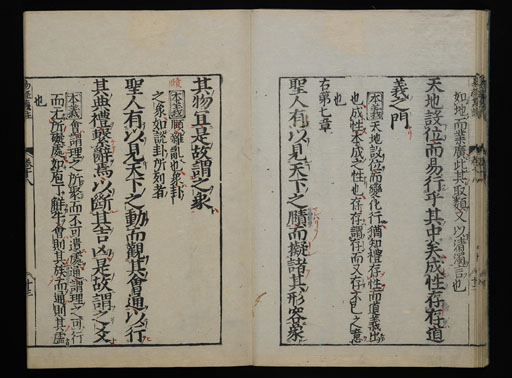 如地而業廣此其取類又以清濁言也
天地設位而易行乎其中矣成性存存道
義之門
本義天地設位而變化行猶知禮存性而道義出
也成性本成之性也存存謂存而又存不已之意
也
右第七章
聖人有以見天下之賾而擬諸其形容象
其物宜是故謂之象
本義賾雜亂也象卦
之象如說卦所列者
聖人有以見天下之動而觀其會通以行
其典禮繫辭焉以斷其吉凶是故謂之爻
本義會謂理之所聚而不可遺處通謂理之可行
而无所礙處如庖丁解牛會則其族而通則其虛
也